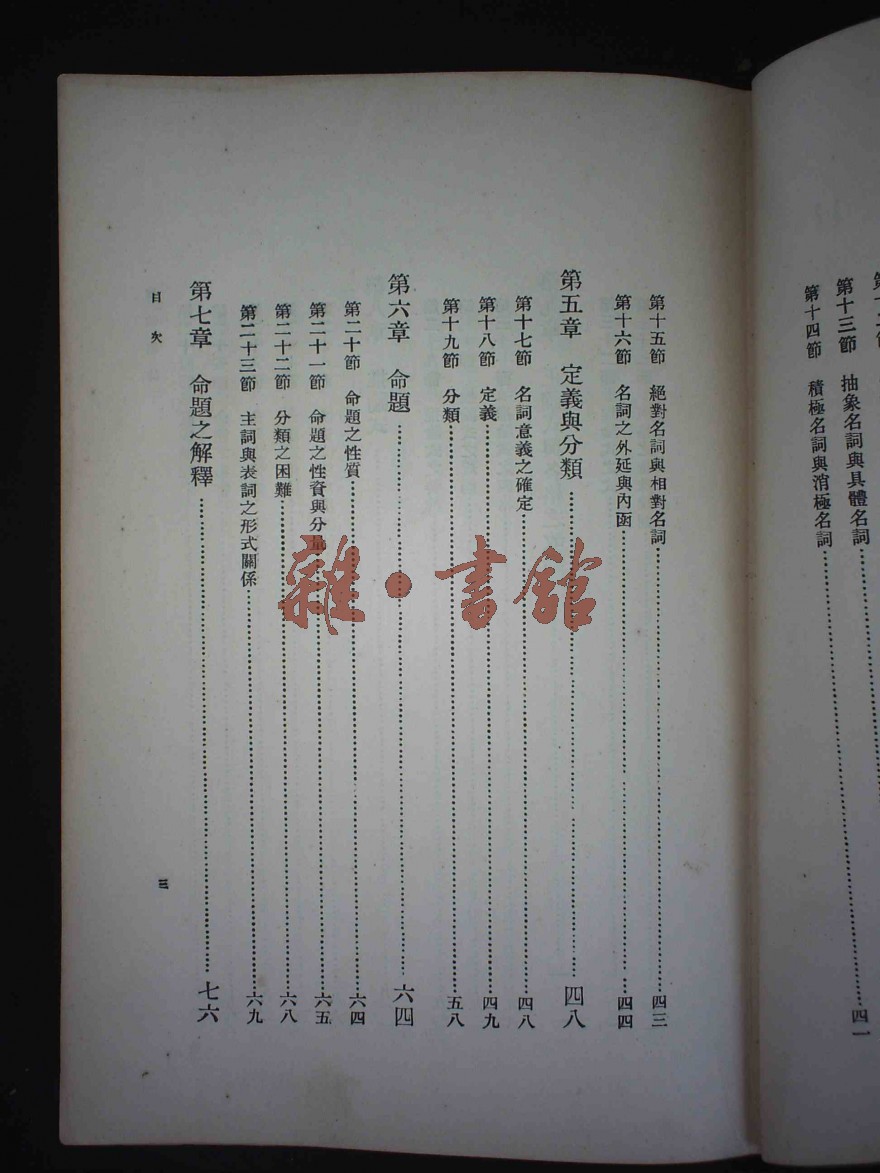 第十三節　抽象名詞與具體名詞……四一
第十四節　積極名詞與消極名詞……
第十五節　絕對名詞與相對名詞……四三
第十六節　名詞之外延與內函……四四
第五章　定義與分類……四八
第十七節　名詞意義之確定……四八
第十八節　定義……四九
第十九節　分類……五八
第六章　命題……六四
第二十節　命題之性質……六四
第二十一節　命題之性資與分量……六五
第二十二節　分類之困難……六八
第二十三節　主詞與表詞之形式關係……六九
第七章　命題之解釋……七六
目次
三
雜·書館